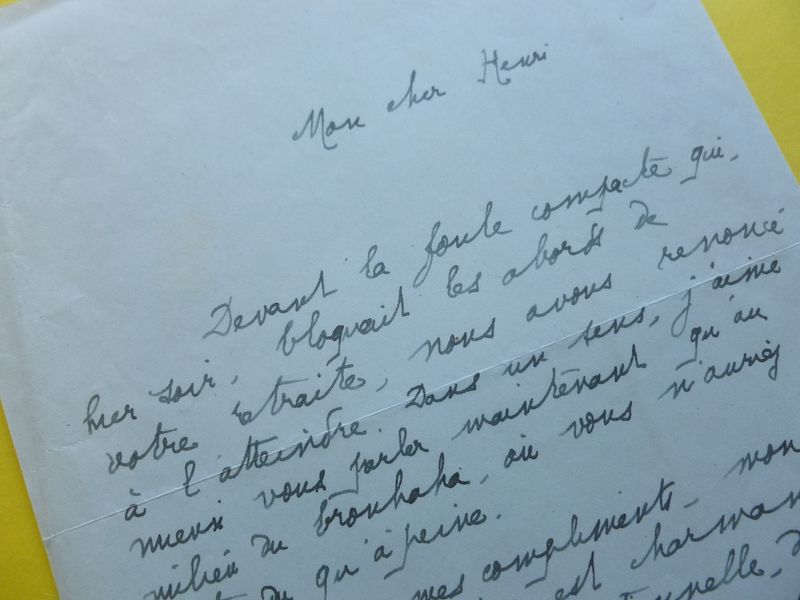 Mon cher Henri
Devant la foule compacte qui,
hier soir, bloquait les abords de
votre retraite, nous avons renoncé
à l'atteindre. Dans un sens, j'aime
mieux vous parler maintenant qu'au
milieu du brouhaha, où vous n'auriez
qu'à peine.
mes compliments, mon
est charman